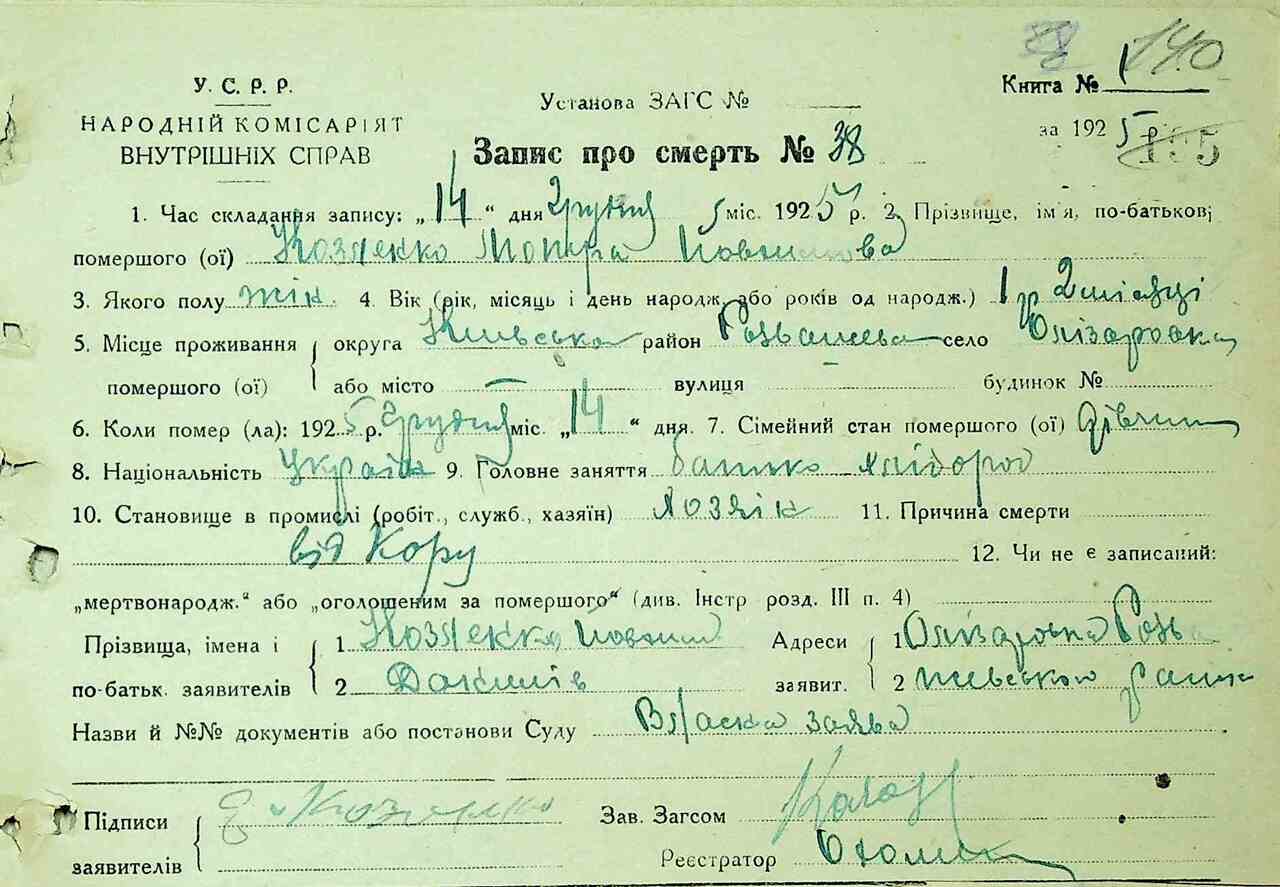 140
У. С. Р. Р.
Книга № 1
НАРОДНІЙ КОМІСАРІЯТ
ВНУТРІШНІХ СПРАВ
Установа ЗАГС №
за 1925 р. 195
Запис про смерть № 38
1. Час складання запису: „14“ дня Грудня міс. 1925 р. 2. Прізвище, ім'я, по-батькові
помершого (ої) Козленко
3. Якого полу жін. 4. Вік (рік, місяць і день народж. або років од народж.) 1 р 2 місяці
5. Місце проживання округа Київська район село
помершого (ої) або місто — вулиця будинок №
6. Коли помер (ла): 1925 р. Грудня міс. „14“ дня. 7. Сімейний стан помершого (ої)
8. Національність Україн 9. Головне заняття батько хлібороб
10. Становище в промислі (робіт., служб., хазяїн) хозяїн 11. Причина смерти
від Кору 12. Чи не є записаний:
„мертвонародж.“ або „оголошеним за помершого“ (див. Інстр розд. III п. 4)
Прізвища, імена і 1 Козленко Адреси 1
по-батьк. заявителів 2 заявит. 2
Назви й №№ документів або постанови Суду Власна заява
Підписи Зав. Загсом
заявителів Реєстратор